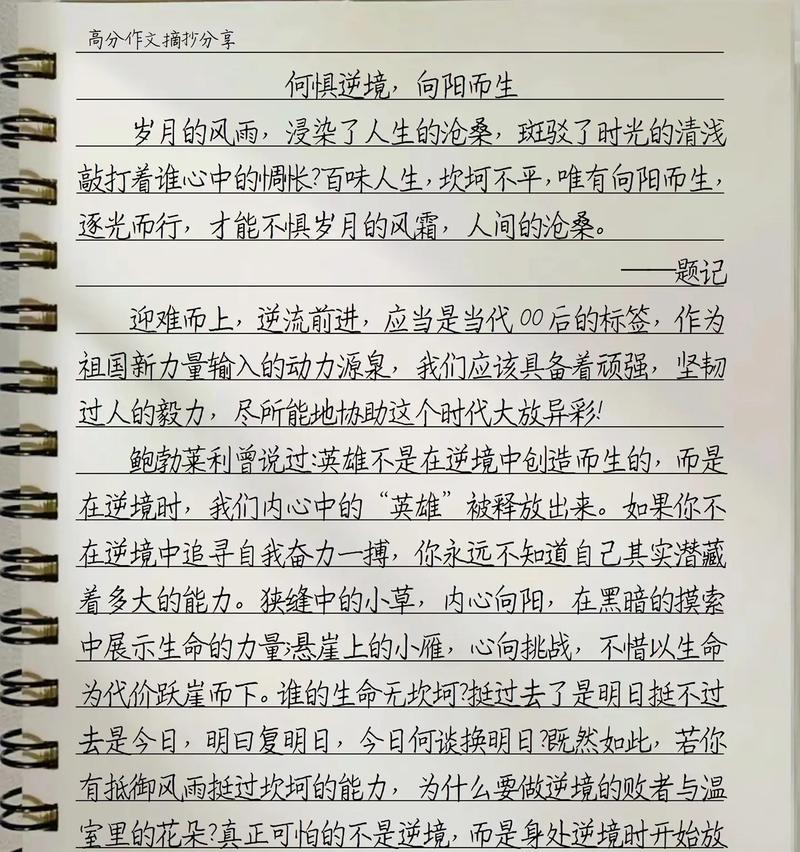 高分作文摘抄分享
何惧逆境，向阳而生
岁月的风雨，浸染了人生的沧桑，斑驳了时光的清浅
敲打着谁心中的惆怅?百味人生，坎坷不平，唯有向阳而生，
逐光而行，才能不惧岁月的风霜，人间的沧桑。
——题记
迎难而上，逆流前进，应当是当代00后的标签，作为
祖国新力量输入的动力源泉，我们应该具备着顽强，坚韧
过人的毅力，尽所能地协助这个时代大放异彩!
鲍勃莱利曾说过:英雄不是在逆境中创造而生的，而是
在逆境时，我们内心中的“英雄”被释放出来。如果你不
在逆境中追寻自我奋力一搏，你永远不知道自己其实潜藏
着多大的能力。狭缝中的小草，内心向阳，在黑暗的摸索
中展示生命的力量;悬崖上的小雁，心向挑战，不惜以生命
为代价跃崖而下。谁的生命无坎坷?挺过去了是明日挺不过
去是今日，明日复明日，今日何谈换明日?既然如此，若你
有抵御风雨挺过坎坷的能力，为什么要做逆境的败者与温
室里的花朵?真正可怕的不是逆境，而是身处逆境时开始放